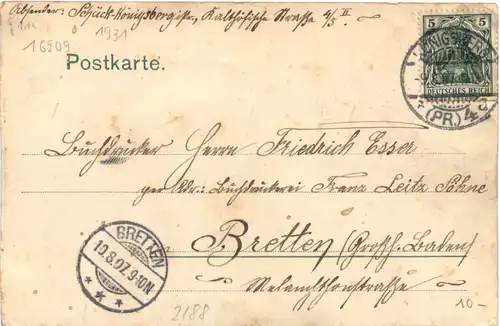 Absender: Schück-Königsberg i/pr, Kalthöfische Straße 4/5 II
1931
16909
Postkarte.
5 5
DEUTSCHES REICH
KÖNIGSBERG
(PR.) 4
a
Buchdrucker Herrn Friedrich Esser
per Adr.: Buchdruckerei Franz Leitz Söhne
in Bretten (Großh. Baden)
Melanchthonstraße
BRETTEN
10.8.07.9-10N
2188
10-